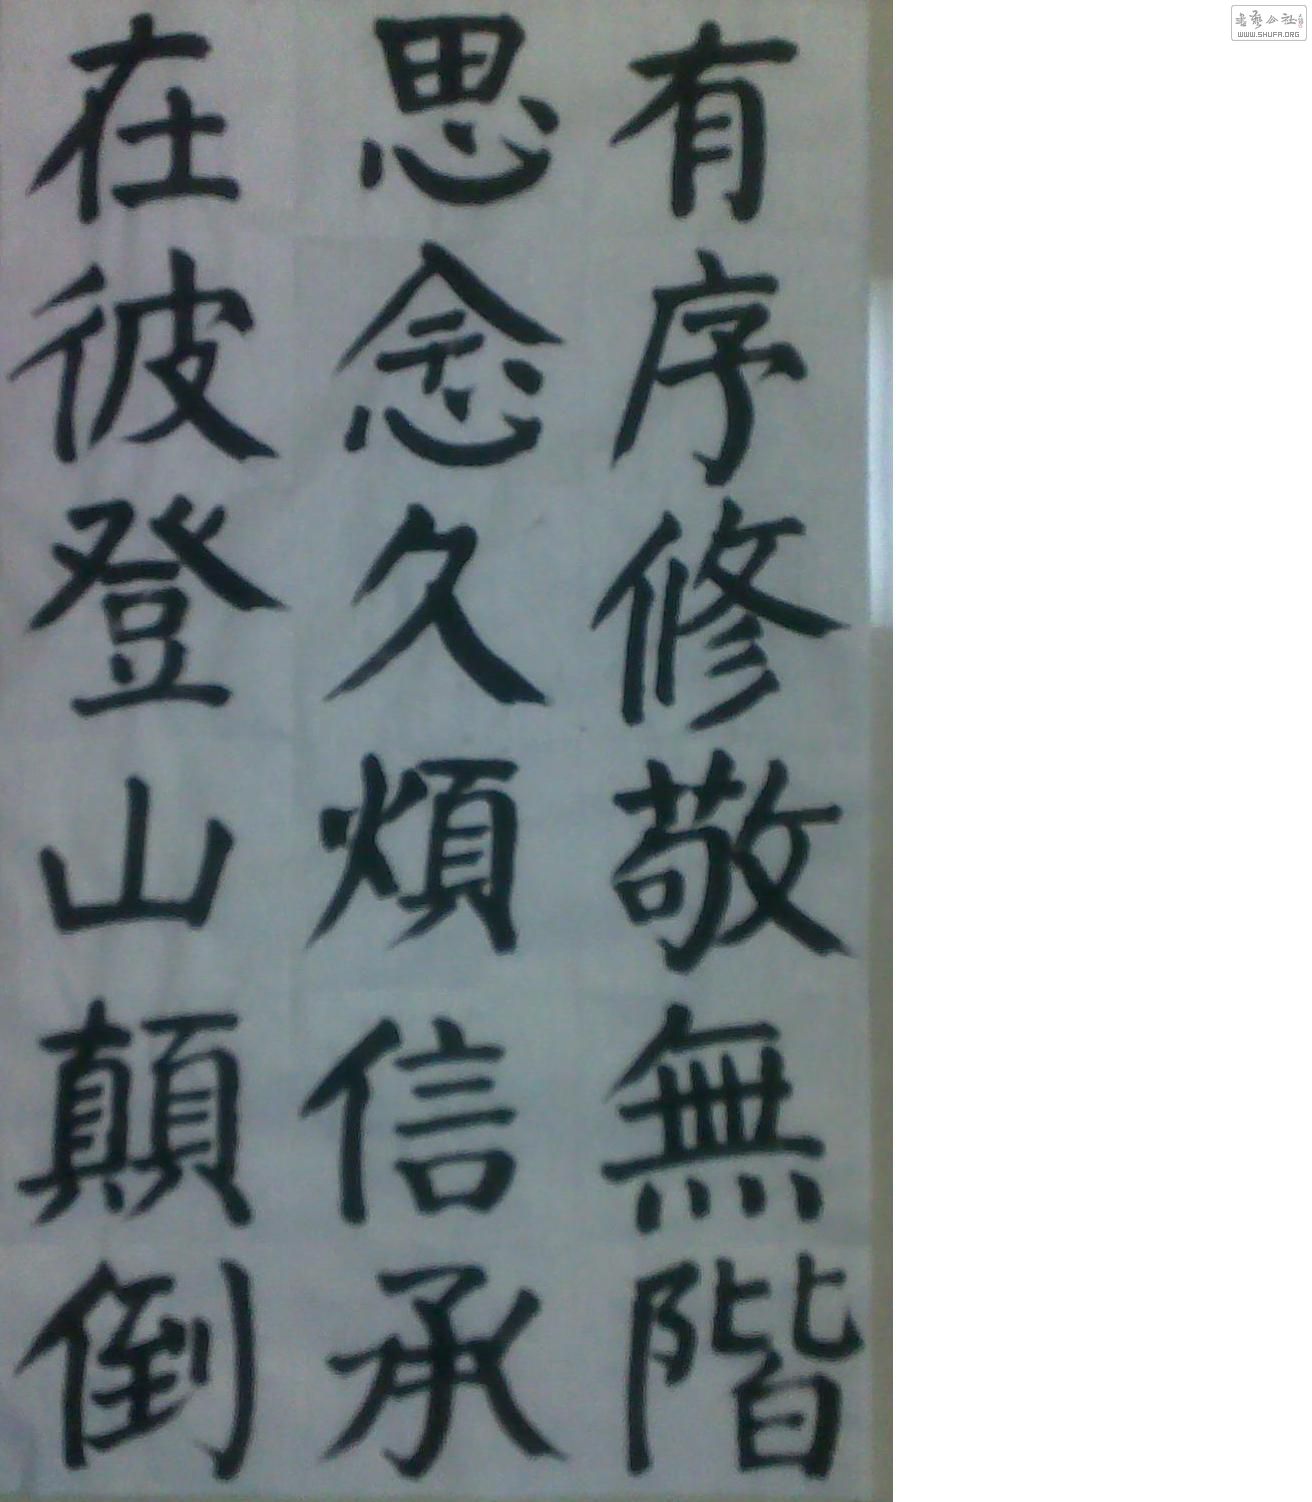 有序修敬無階
思念久煩信承
在彼登山顛倒
书艺公社
WWW.SHUFA.ORG